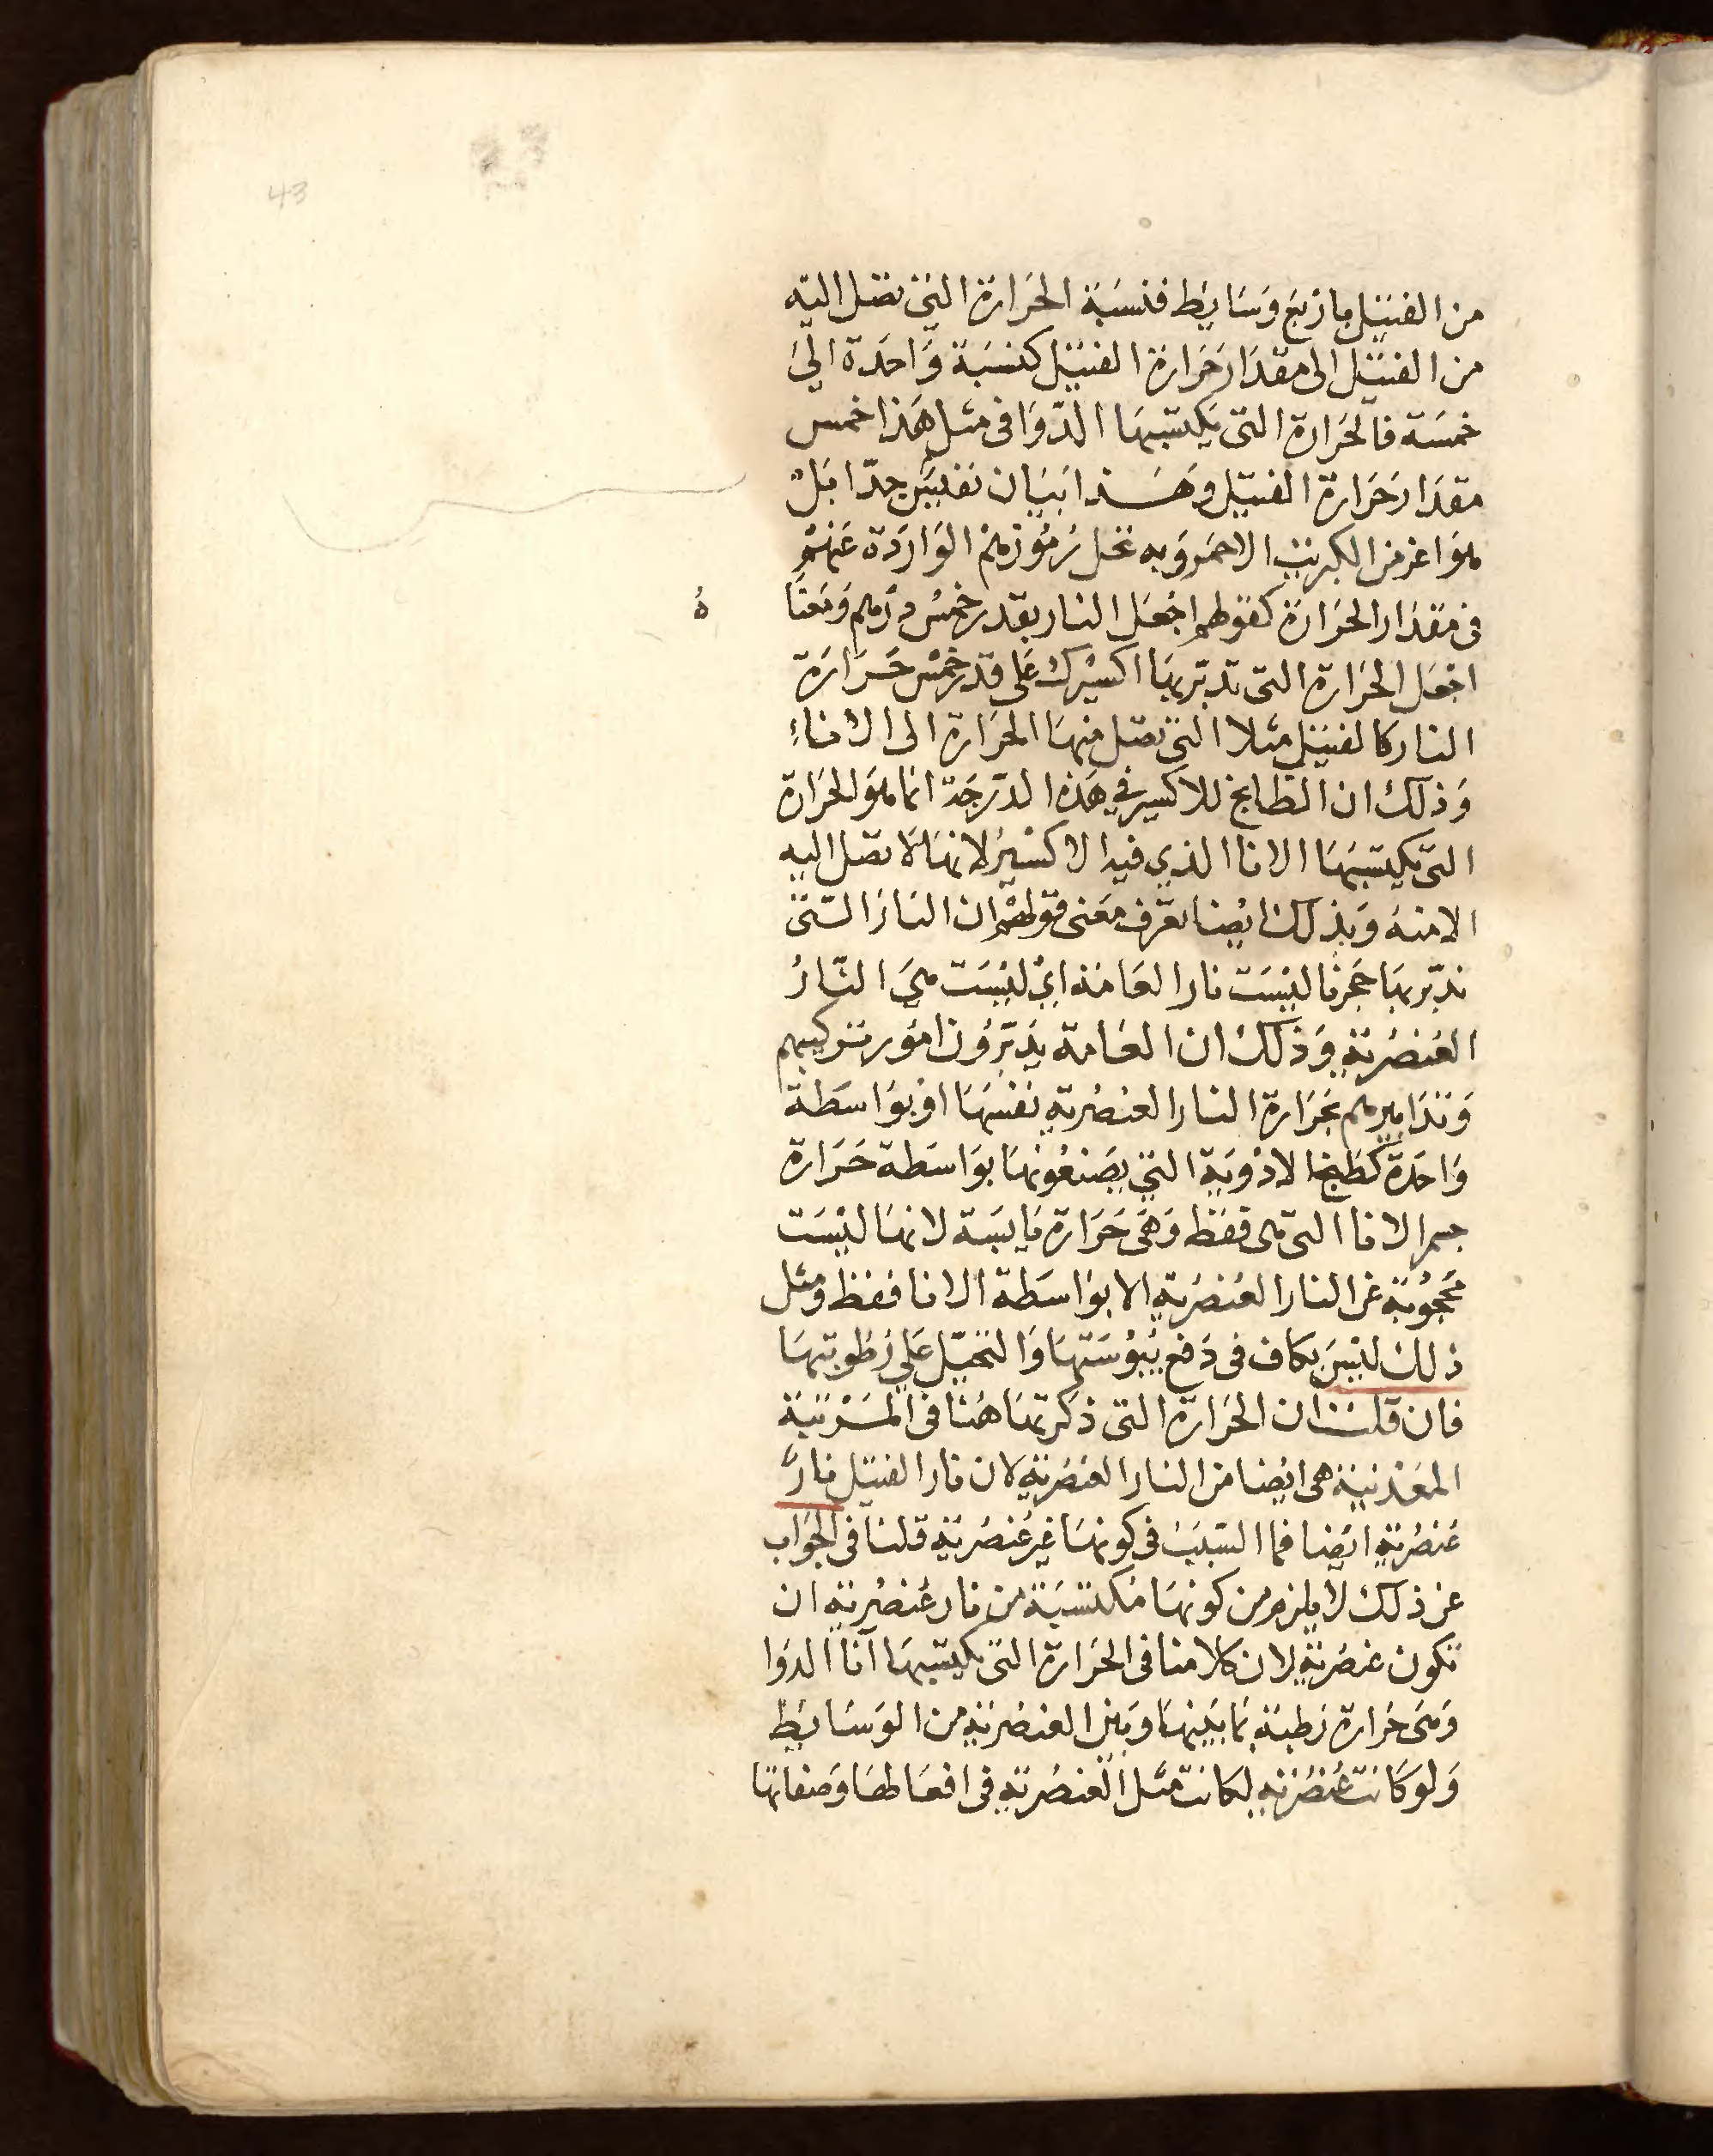 43
من الفتيل باربع وسايط فنسبة الحرارة التي تصل اليه
من الفتيل الى مقدار حرارة الفتيل كنسبة واحدة الى
خمسة فالحرارة التي يكتسبها الدوا في مثل هذا خمس
مقدار حرارة الفتيل وهذا بيان نفيس جدا بل
هو اعز من الكبريت الاحمر وبه تحل رموزهم الواردة عنهم
في مقدار الحرارة كقولهم اجعل النار بقدر خمس درهم ومعنا
هُ
اجعل الحرارة التي تدبر بها اكسيرك على قدر خمس حرارة
النار كالفتيل مثلا التي تصل منها الحرارة الى الاناء
وذلك ان الطابخ للاكسير في هذه الدرجة انما هو الحرارة
التي يكتسبها الانا الذي فيه الاكسير لانها لا تصل اليه
الا منه وبذلك ايضا تعرف معنى قولهم ان النار التي
ندبر بها حجرنا ليست نار العامة اي ليست هي النار
العنصرية وذلك ان العامة يدبرون امور تركيبهم
وتدابيرهم بحرارة النار العنصرية نفسها او بواسطة
واحدة كطبخ الادوية التي يصنعونها بواسطة حرارة
جسم الانا التي هي فقط وهي حرارة يابسة لانها ليست
محجوبة عن النار العنصرية الا بواسطة الانا فقط ومثل
ذلك ليس بكاف في دفع يبوستها والتحيل على رطوبتها
فان قلت ان الحرارة التي ذكرتها هنا في المرتبة
المعدنية هي ايضا من النار العنصرية لان نار الفتيل نار
عنصرية ايضا فما السبب في كونها غير عنصرية قلنا في الجواب
عن ذلك لا يلزم من كونها مكتسبة من نار عنصرية ان
تكون عنصرية لان كلامنا في الحرارة التي يكتسبها انا الدوا
وهي حرارة رطبة بما بينها وبين العنصرية من الوسايط
ولو كانت عنصرية لكانت مثل العنصرية في افعالها وصفاتها